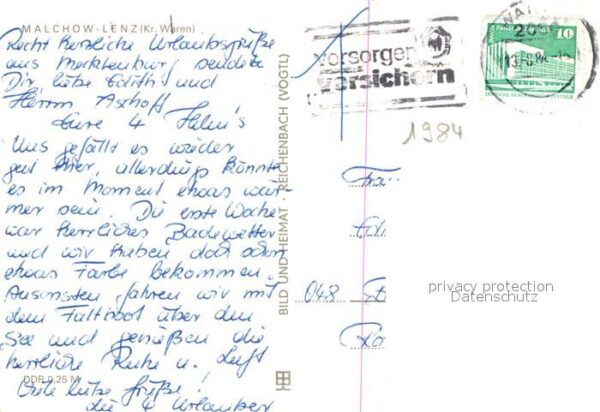 MALCHOW-LENZ (Kr. Waren)
Recht herzliche Urlaubsgrüße
aus Mecklenburg senden
Dir, liebe Edith und
Herrn Ashoff
Eure 4 Helm's
Uns gefällt es wieder
gut hier, allerdings könnte
es im Moment etwas wär-
mer sein. Die erste Woche
war herrliches Badewetter
und wir haben doch schon
etwas Farbe bekommen.
Ansonsten fahren wir mit
dem Faltboot über den
See und genießen die
herrliche Ruhe u. Luft
Viele liebe Grüße!
die 4 Urlauber
DDR 0,25 M
BILD UND HEIMAT · REICHENBACH (VOGTL)
vorsorgen
versichern
10
1984
Frau
Edi
048
privacy protection
Datenschutz